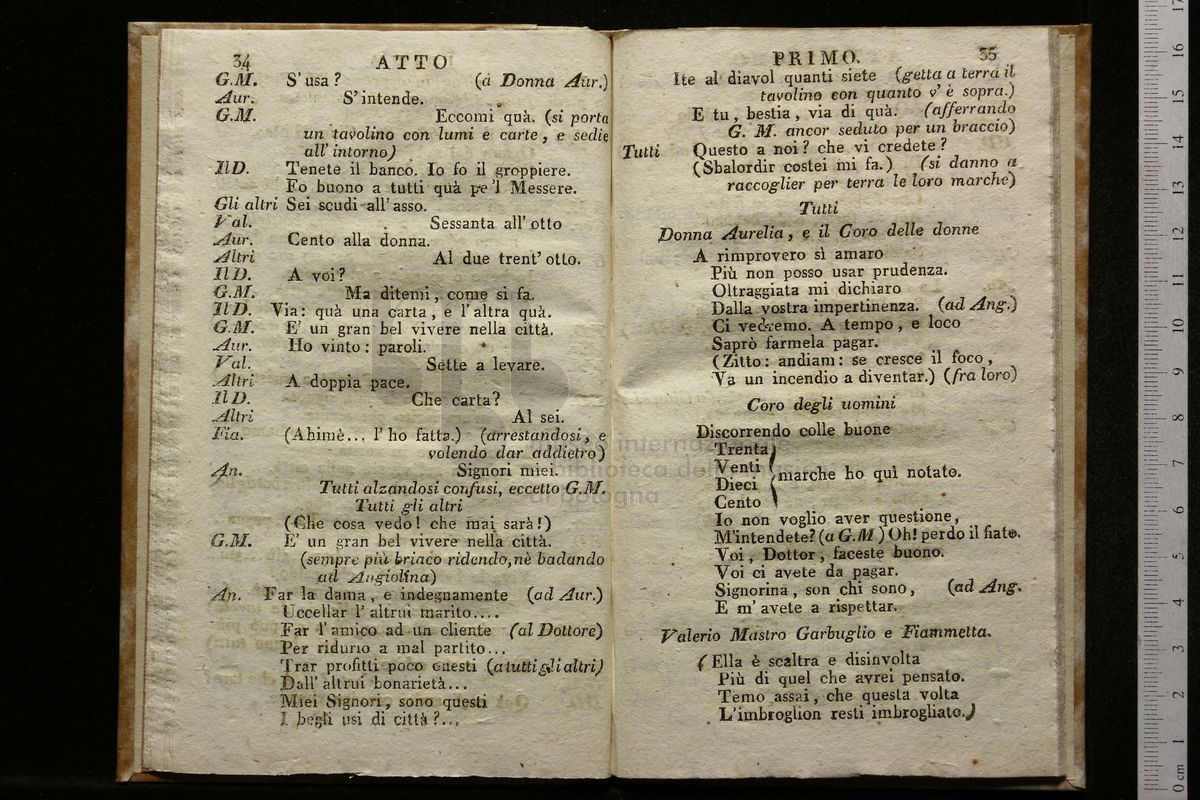 34
ATTO
G.M. S'usa? (a Donna Aur.)
Aur. S'intende.
G.M. Eccomi quà. (si porta
un tavolino con lumi e carte, e sedie
all'intorno)
Il D. Tenete il banco. Io fo il groppiere.
Fo buono a tutti quà pe'l Messere.
Gli altri Sei scudi all'asso.
Val. Sessanta all'otto
Aur. Cento alla donna.
Altri Al due trent'otto.
Il D. A voi?
G.M. Ma ditemi, come si fa.
Il D. Via: quà una carta, e l'altra quà.
G.M. E' un gran bel vivere nella città.
Aur. Ho vinto: paroli.
Val. Sette a levare.
Altri A doppia pace.
Il D. Che carta?
Altri Al sei.
Fia. (Ahimè... l'ho fatta.) (arrestandosi, e
volendo dar addietro)
An. Signori miei.
Tutti alzandosi confusi, eccetto G.M.
Tutti gli altri
(Che cosa vedo! che mai sarà!)
G.M. E' un gran bel vivere nella città.
(sempre più briaco ridendo, nè badando
ad Angiolina)
An. Far la dama, e indegnamente (ad Aur.)
Uccellar l'altrui marito....
Far l'amico ad un cliente (al Dottore)
Per ridurlo a mal partito...
Trar profitti poco onesti (a tutti gli altri)
Dall'altrui bonarietà...
Miei Signori, sono questi
I begli usi di città?...
PRIMO.
35
Ite al diavol quanti siete (getta a terra il
tavolino con quanto v'è sopra.)
E tu, bestia, via di quà. (afferrando
G. M. ancor seduto per un braccio)
Tutti Questo a noi? che vi credete?
(Sbalordir costei mi fa.) (si danno a
raccoglier per terra le loro marche)
Tutti
Donna Aurelia, e il Coro delle donne
A rimprovero sì amaro
Più non posso usar prudenza.
Oltraggiata mi dichiaro
Dalla vostra impertinenza. (ad Ang.)
Ci vedremo. A tempo, e loco
Saprò farmela pagar.
(Zitto: andiam: se cresce il foco,
Va un incendio a diventar.) (fra loro)
Coro degli uomini
Discorrendo colle buone
Trenta
Venti
marche ho quì notate.
Dieci
Cento
Io non voglio aver questione,
M'intendete? (a G.M) Oh! perdo il fiato.
Voi, Dottor, faceste buono.
Voi ci avete da pagar.
Signorina, son chi sono, (ad Ang.
E m'avete a rispettar.
Valerio Mastro Garbuglio e Fiammetta.
(Ella è scaltra e disinvolta
Più di quel che avrei pensato.
Temo assai, che questa volta
L'imbroglion resti imbrogliato.)